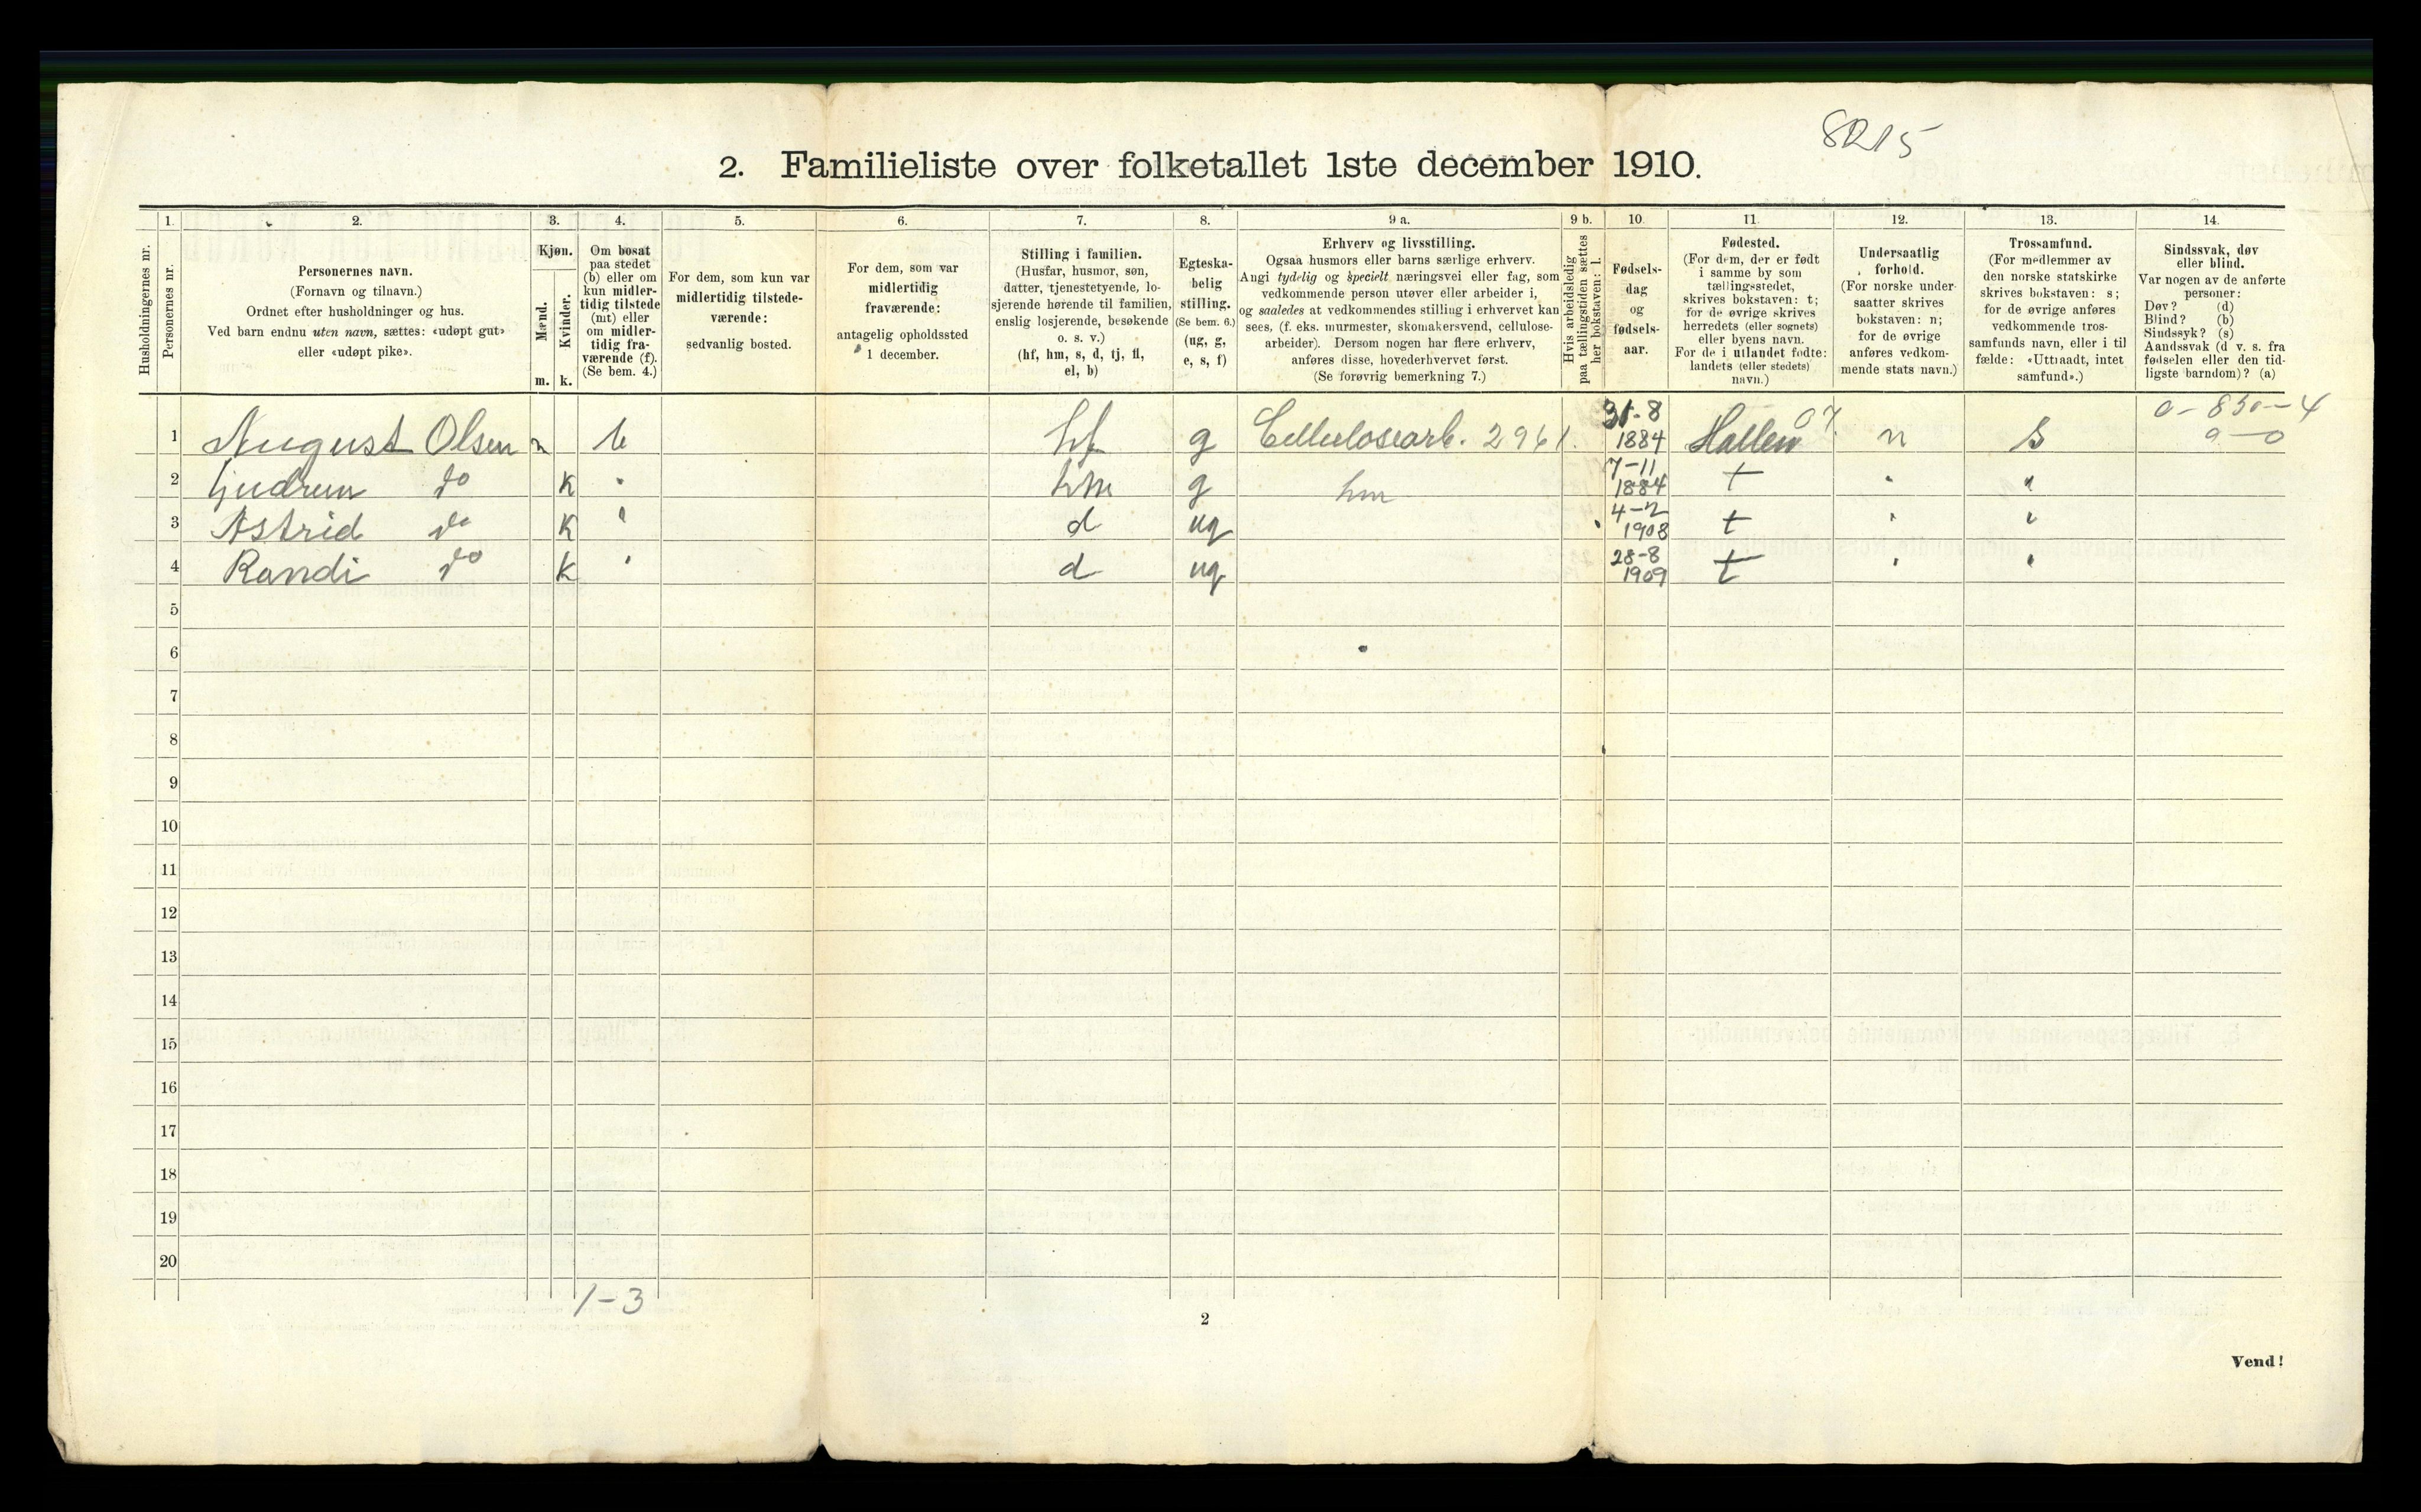 8215
2. Familieliste over folketallet 1ste december 1910.
Husholdningernes nr.
1. Personernes nr.
2. Personernes navn.
(Fornavn og tilnavn.)
Ordnet efter husholdninger og hus.
Ved barn endnu uten navn, sættes: «udøpt gut»
eller «udøpt pike».
3. Kjøn.
Mænd. m.
Kvinder. k.
4. Om bosat
paa stedet
(b) eller om
kun midler-
tidig tilstede
(mt) eller
om midler-
tidig fra-
værende (f).
(Se bem. 4.)
5. For dem, som kun var
midlertidig tilstede-
værende:
sedvanlig bosted.
6. For dem, som var
midlertidig
fraværende:
antagelig opholdssted
1 december.
7. Stilling i familien.
(Husfar, husmor, søn,
datter, tjenestetyende, lo-
sjerende hørende til familien,
enslig losjerende, besøkende
o. s. v.)
(hf, hm, s, d, tj, fl,
el, b)
8. Egteska-
belig
stilling.
(Se bem. 6.)
(ug, g,
e, s, f)
9 a. Erhverv og livsstilling.
Ogsaa husmors eller barns særlige erhverv.
Angi tydelig og specielt næringsvei eller fag, som
vedkommende person utøver eller arbeider i,
og saaledes at vedkommendes stilling i erhvervet kan
sees, (f. eks. murmester, skomakersvend, cellulose-
arbeider). Dersom nogen har flere erhverv,
anføres disse, hovederhvervet først.
(Se forøvrig bemerkning 7.)
9 b. Hvis arbeidsledig
paa tællingstiden sættes
her bokstaven: l.
10. Fødsels-
dag
og
fødsels-
aar.
11. Fødested.
(For dem, der er født
i samme by som
tællingsstedet,
skrives bokstaven: t;
for de øvrige skrives
herredets (eller sognets)
eller byens navn.
For de i utlandet fødte:
landets (eller stedets)
navn.)
12. Undersaatlig
forhold.
(For norske under-
saatter skrives
bokstaven: n;
for de øvrige
anføres vedkom-
mende stats navn.)
13. Trossamfund.
(For medlemmer av
den norske statskirke
skrives bokstaven: s;
for de øvrige anføres
vedkommende tros-
samfunds navn, eller i til
fælde: «Uttraadt, intet
samfund».)
14. Sindssvak, døv
eller blind.
Var nogen av de anførte
personer:
Døv? (d)
Blind? (b)
Sindssyk? (s)
Aandssvak (d. v. s. fra
fødselen eller den tid-
ligste barndom)? (a)
0-850-4
0-0
1 August Olsen m b hf g Cellulosearb. 2961. 31-8 1884 07 n s
2 Gudrun do k " hm g hm 7-11 1884 t " "
3 Astrid do k " d ug 4-2 1908 t " "
4 Randi do k " d ug 28-8 1909 t " "
5
6
7
8
9
10
11
12
13
14
15
16
17
18
19
20
1-3
2
Vend!